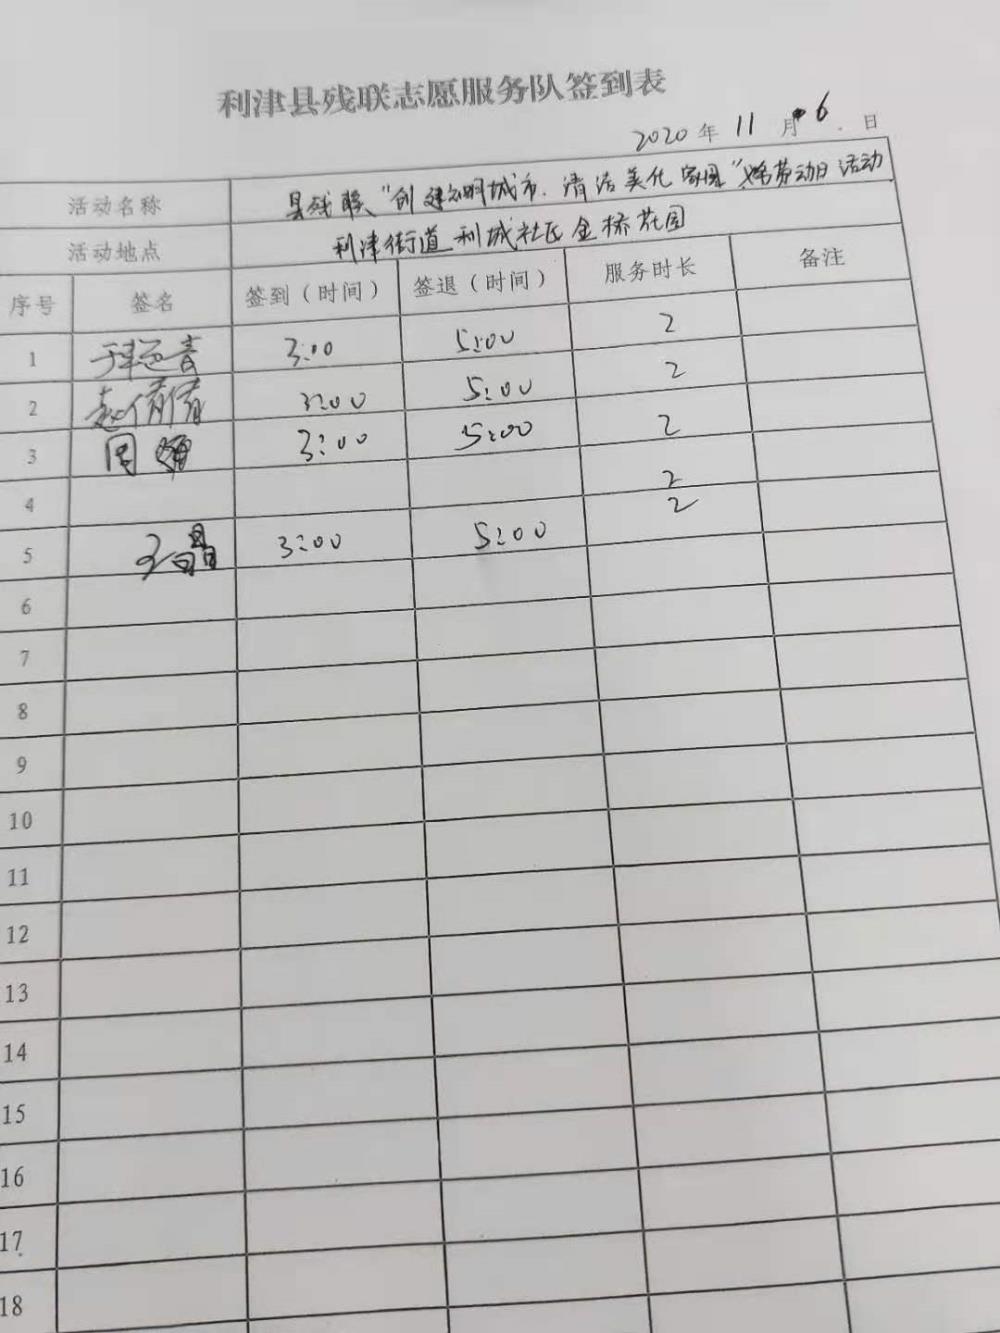 利津县残联志愿服务队签到表
2020 年 11 月 6 日
活动名称 县残联"创建文明城市、清洁美化家园"义务劳动日活动
活动地点 利津街道利城社区金桥花园
序号 签名 签到（时间） 签退（时间） 服务时长 备注
1 3:00 5:00 2
2 赵倩倩 3:00 5:00 2
3 周 3:00 5:00 2
4 2
5 王晶 3:00 5:00 2
6
7
8
9
10
11
12
13
14
15
16
17
18